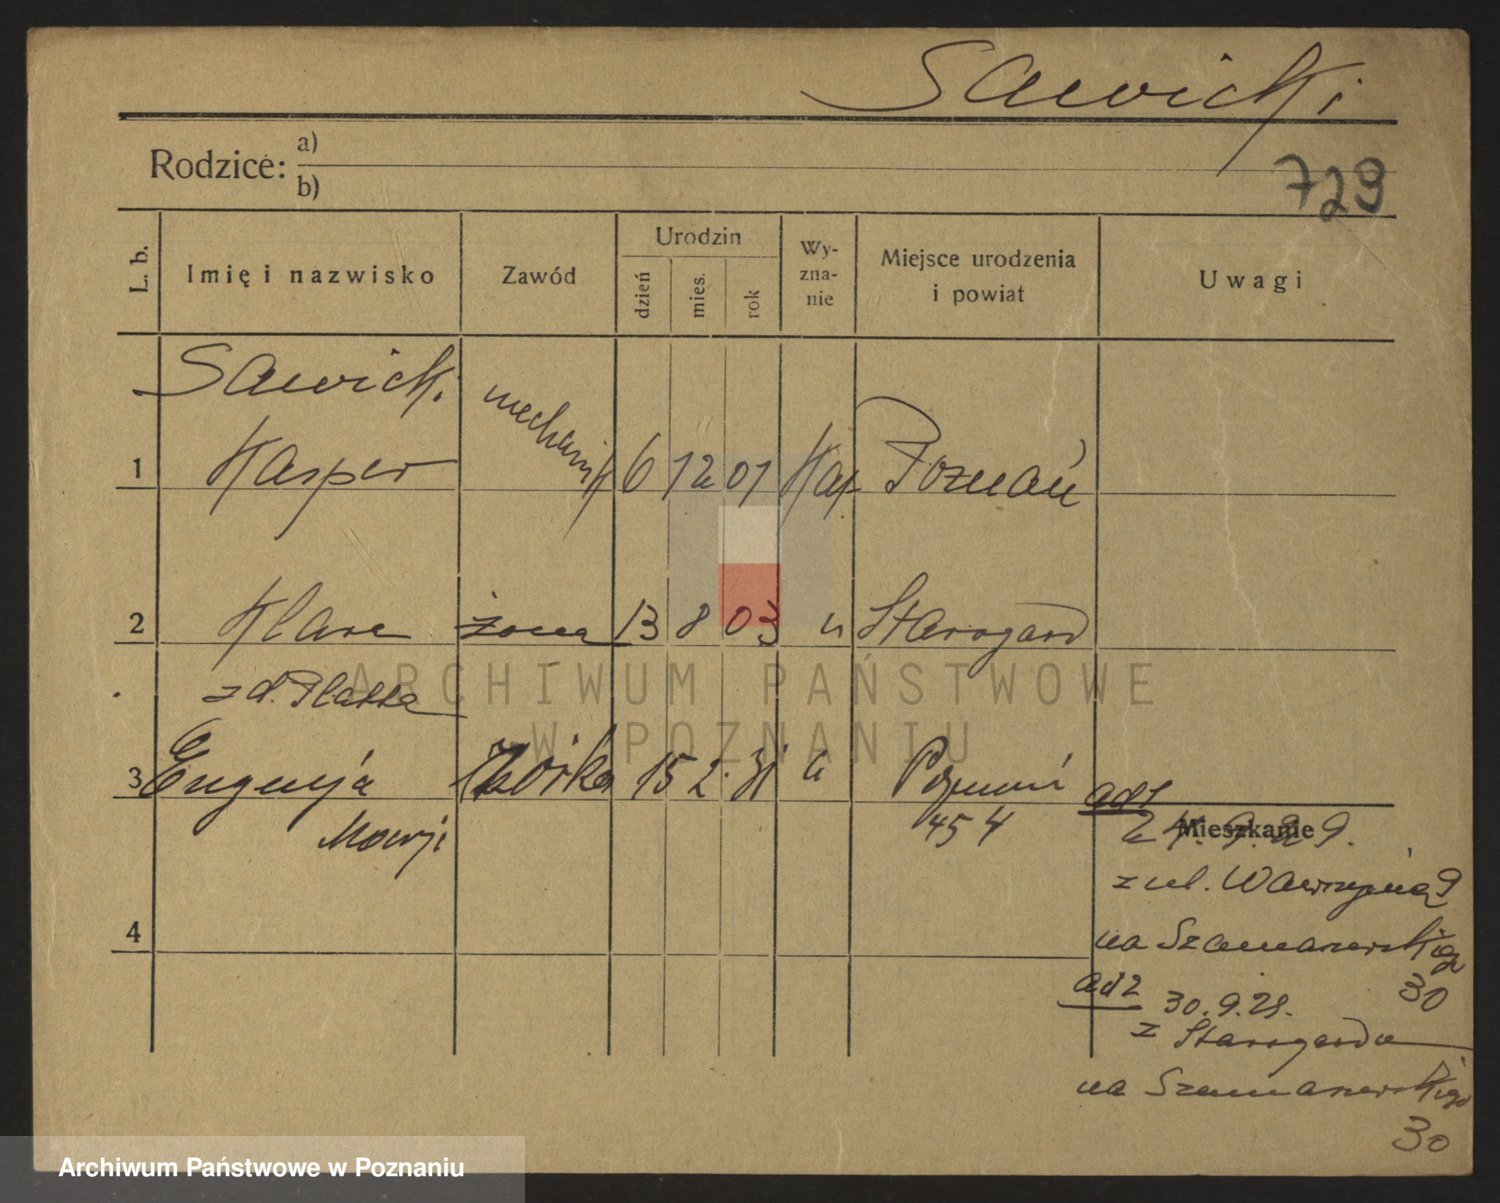 Sawicki
Rodzice: a)
b)
729
L. b.
Imię i nazwisko
Zawód
Urodzin
dzień
mies.
rok
Wy-
zna-
nie
Miejsce urodzenia
i powiat
Uwagi
Sawicki
1 Kasper mechanik 6 12 01 Kat. Poznań
2 Klara żona 13 8 03 " Starogard
zd. Platta
3 Eugenja córka 15 2. 31 " Poznań
454
4
ad 1
Mieszkanie
24. 9. 29.
z ul. Wawrzyńca 9
na Szamarzewskiego
30
ad 2
30. 9. 29.
z Starogardu
na Szamarzewskiego
30
ARCHIWUM PAŃSTWOWE
W POZNANIU
Archiwum Państwowe w Poznaniu